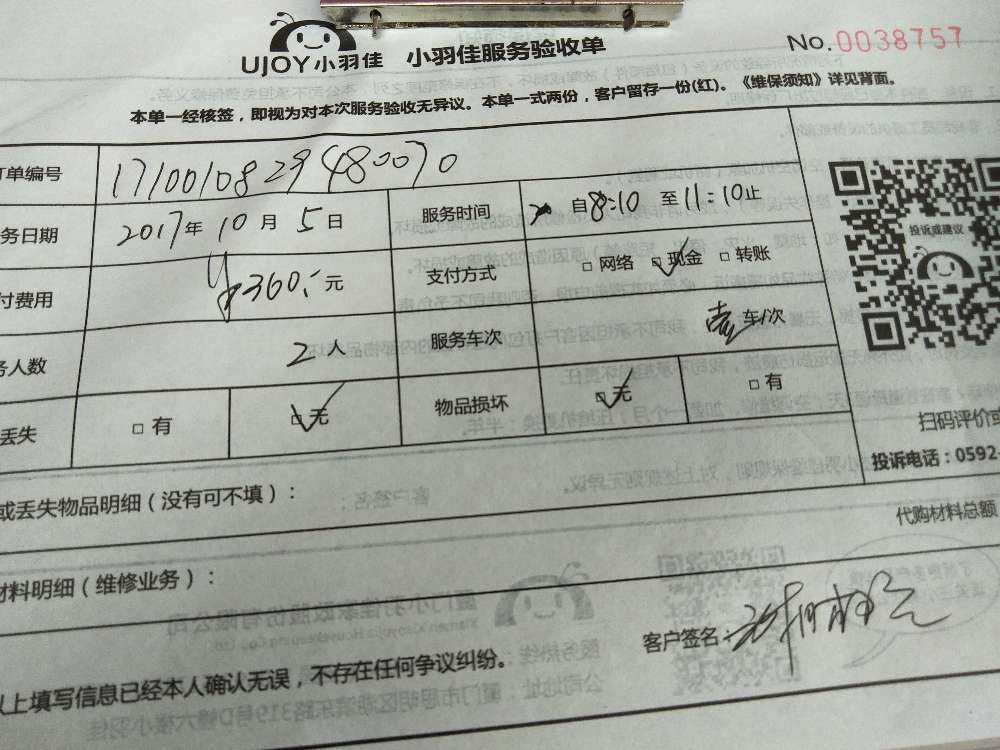 UJOY小羽佳 小羽佳服务验收单 No.0038757
本单一经核签，即视为对本次服务验收无异议。本单一式两份，客户留存一份(红)。《维保须知》详见背面。
订单编号 17100108294480070
务日期 2017年10月5日 服务时间 自8:10至11:10止
付费用 ¥360.-元 支付方式 □网络 ☑现金 □转账
务人数 2人 服务车次 壹车/次
丢失 □有 ☑无 物品损坏 ☑无 □有
投诉或建议
扫码评价或
投诉电话：0592-
或丢失物品明细（没有可不填）：
代购材料总额
材料明细（维修业务）：
客户签名：
以上填写信息已经本人确认无误，不存在任何争议纠纷。